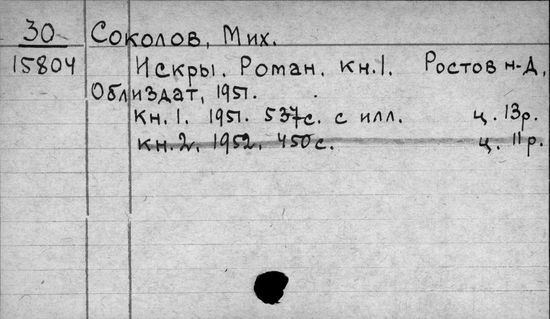 30 Соколов, Мих.
15804 Искры. Роман. кн.1. Ростов н-Д,
Облиздат, 1951.
кн.1. 1951. 537с. с илл. ц. 13р.
кн.2. 1952. 450с. ц. 11р.